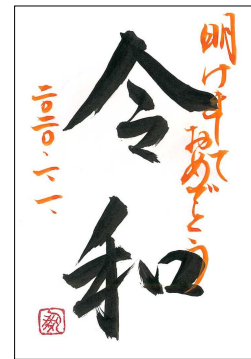 明けまして
おめでとう
令和
二〇二〇、一、一、